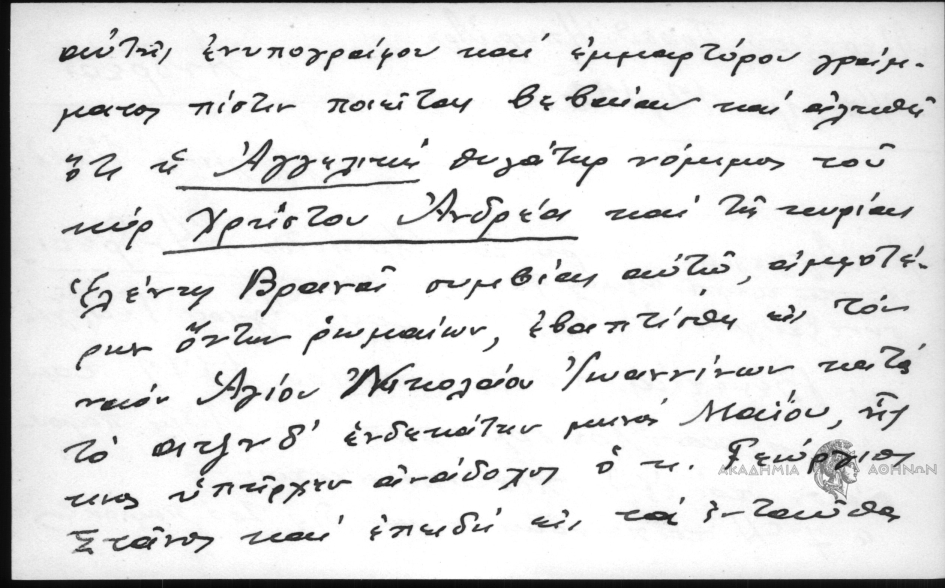 αὐτῆς ἐνυπογράφου καὶ ἐμμαρτύρου γράμ-
ματος πίστιν ποιεῖται βεβαίαν καὶ ἀληθῆ
ὅτι ἡ Ἀγγελικὴ θυγάτηρ νόμιμος τοῦ
κὺρ Χρήστου Ἀνδρέα καὶ τῆς κυρίας
Ἑλένης Βρανᾶ συμβίας αὐτοῦ, ἀμφοτέ-
ρων ὄντων ῥωμαίων, ἐβαπτίσθη εἰς τὸν
ναὸν Ἁγίου Νικολάου Ἰωαννίνων κατὰ
τὸ αψξνδ' ἑνδεκάτην μηνὸς Μαΐου, ἧς
ὑπῆρχεν ἀνάδοχος ὁ κ. Γεώργιος
Στάνος καὶ ἐπειδὴ εἰς τὰ ἐνταῦθα
ΑΚΑΔΗΜΙΑ ΑΘΗΝΩΝ